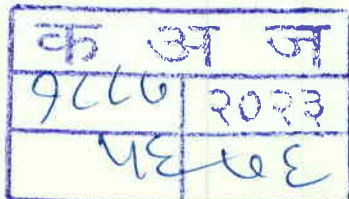 क अ ज
१८८७ २०२३
५६ ७६